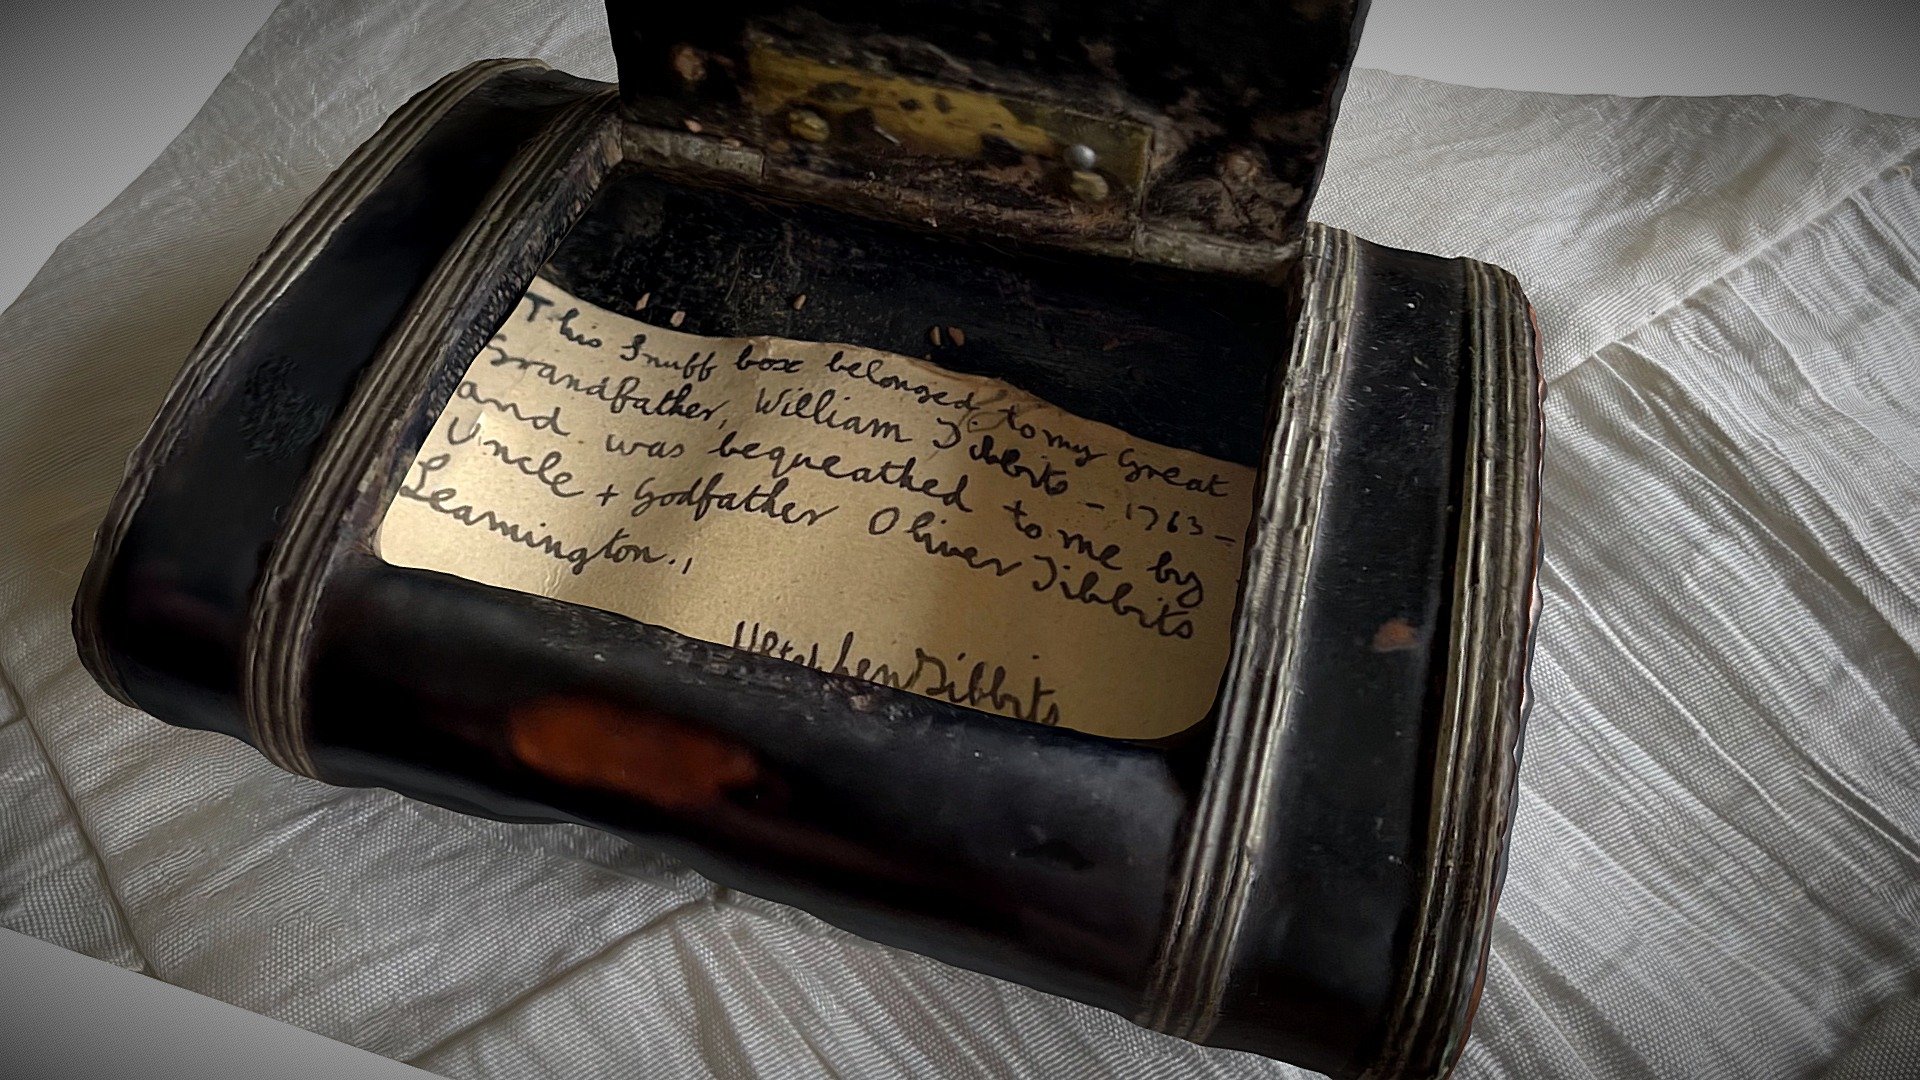 This Snuff box belonged to my Great
Grandfather, William Tibbits - 1763 -
and was bequeathed to me by
Uncle + Godfather Oliver Tibbits
Leamington.,
Stephen Tibbits